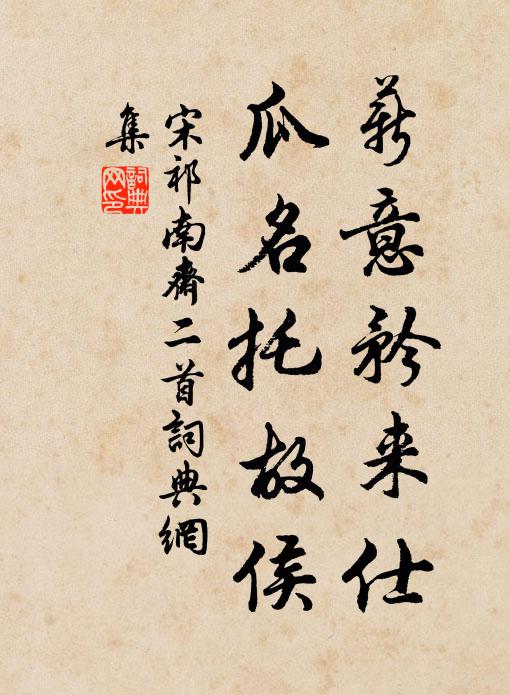 薪意矜来仕
瓜名托故侯
宋祁南齋二首詞典網
集
詞典
网印